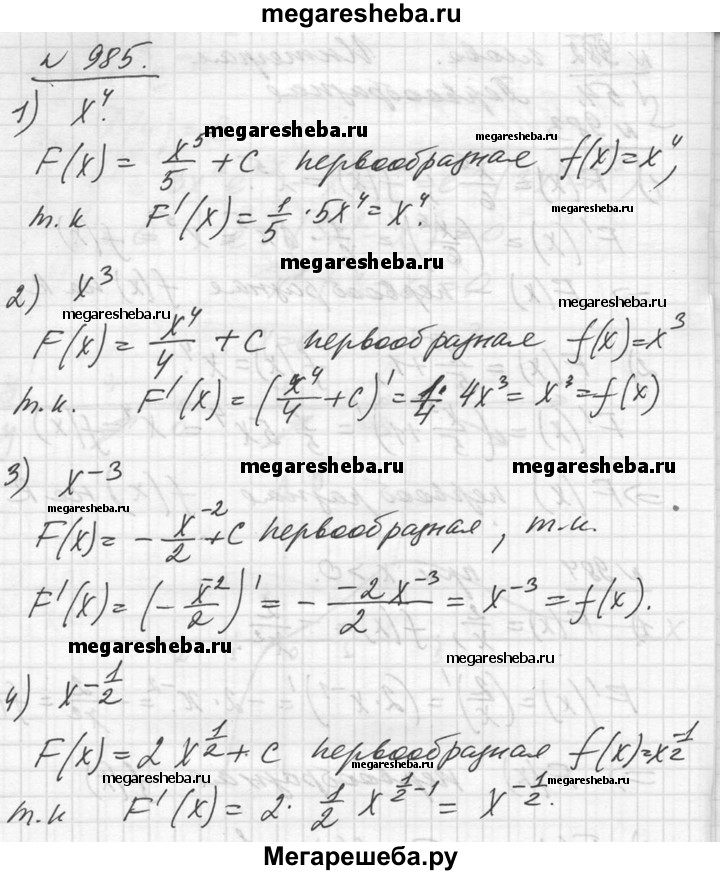 megaresheba.ru
№ 985.
1) x⁴.
megaresheba.ru megaresheba.ru
F(x) = x⁵/5 + C первообразная f(x)=x⁴,
megaresheba.ru
т.к F'(x) = 1/5 · 5x⁴ = x⁴.
megaresheba.ru
2) x³
megaresheba.ru megaresheba.ru
F(x) = x⁴/4 + C первообразная f(x)=x³
т.к. F'(x) = (x⁴/4 + C)' = 1/4 · 4x³ = x³ = f(x)
3) x⁻³ megaresheba.ru megaresheba.ru
F(x) = - x⁻²/2 + C первообразная, т.к.
megaresheba.ru
F'(x) = (- x⁻²/2)' = - -2x⁻³/2 = x⁻³ = f(x).
megaresheba.ru megaresheba.ru
4) x^(-1/2)
F(x) = 2x^(1/2) + C первообразная f(x)=x^(-1/2)
megaresheba.ru megaresheba.ru megaresheba.ru
т.к F'(x) = 2 · 1/2 x^(1/2-1) = x^(-1/2).
Мегарешеба.ру